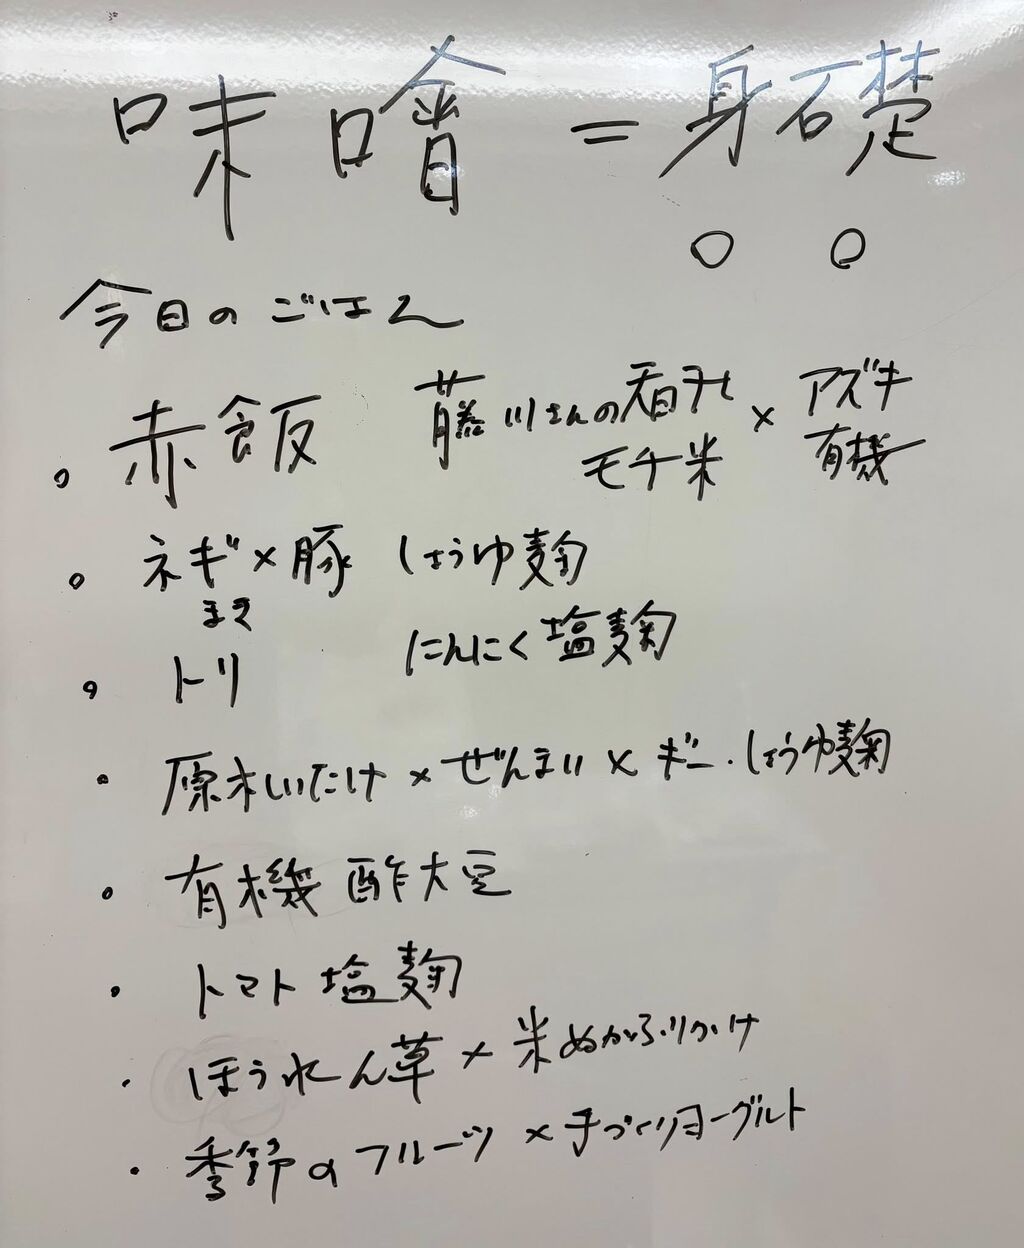 味噌 = 身礎
○ ○
今日のごはん
。赤飯 藤川さんの天日干しモチ米 × アズキ有機
。ネギ×豚 しょうゆ麹
まき
。トリ にんにく塩麹
。原木しいたけ × ぜんまい × ギー・しょうゆ麹
。有機 酢大豆
・トマト 塩麹
・ほうれん草 × 米ぬかふりかけ
・季節のフルーツ × 手づくりヨーグルト